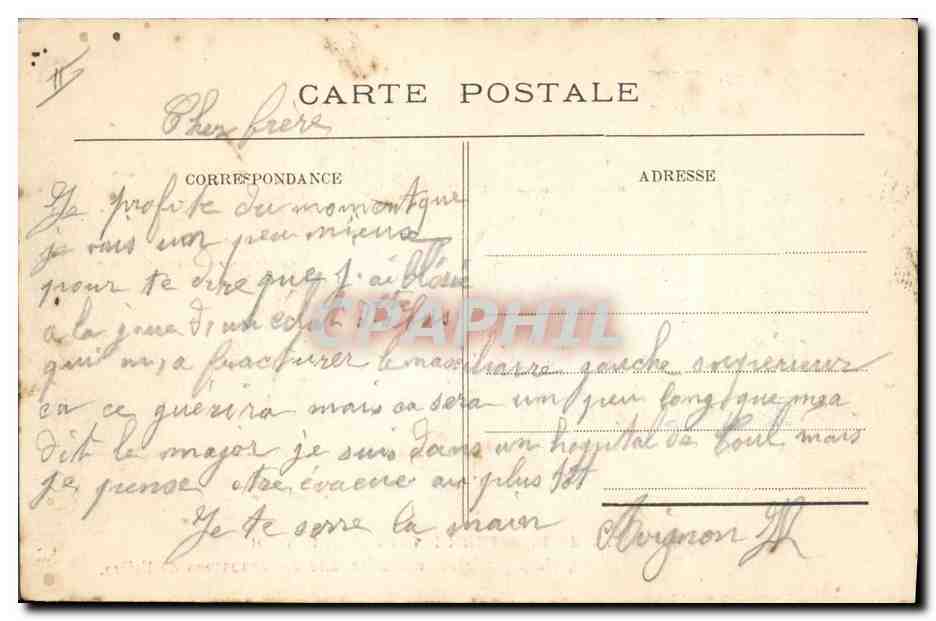 CARTE POSTALE
Cher frère
CORRESPONDANCE
ADRESSE
Je profite du moment que
je vais un peu mieux
pour te dire que j'ai blésse
a la joue d'un eclat
qui m,a fracturer le maxiliaire gauche supérieur
ca ce guérira mais ca sera un peu long que ma
dit le major je suis dans un hopital de Toul mais
je pense etre évacue au plus tot
Je te serre la main
Avignon
CPAPHIL